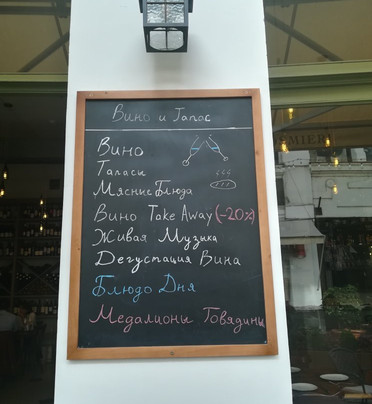 Вино и Тапас
Вино
Тапасы
Мясные Блюда
Вино Take Away (-20%)
Живая Музыка
Дегустация Вина
Блюдо Дня
Медалионы Говядины